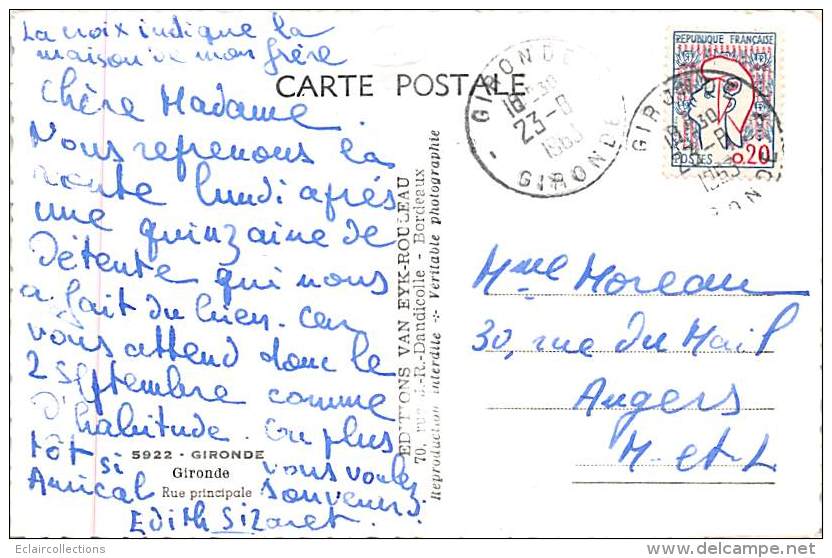 La croix indique la
maison de mon frère
CARTE POSTALE
Chère Madame,
Nous reprenons la
route lundi après
une quinzaine de
détente qui nous
a fait du bien. On
vous attend donc le
2 septembre comme
d'habitude. Ou plus
tôt si vous voulez
Amical souvenir.
Edith Sizaret
5922 - GIRONDE
Gironde
Rue principale
EDITIONS VAN EYK-ROULEAU
70, rue J.-R.-Dandicolle - Bordeaux
Reproduction interdite -:- Véritable photographie
GIRONDE
18 30
23-8
1963
GIRONDE
REPUBLIQUE FRANÇAISE
POSTES 0,20
GIRONDE
18 30
23-8
1963
GIRONDE
Mme Moreau
30, rue du Mail
Angers
M-et-L
Eclaircollections
delcampe.net